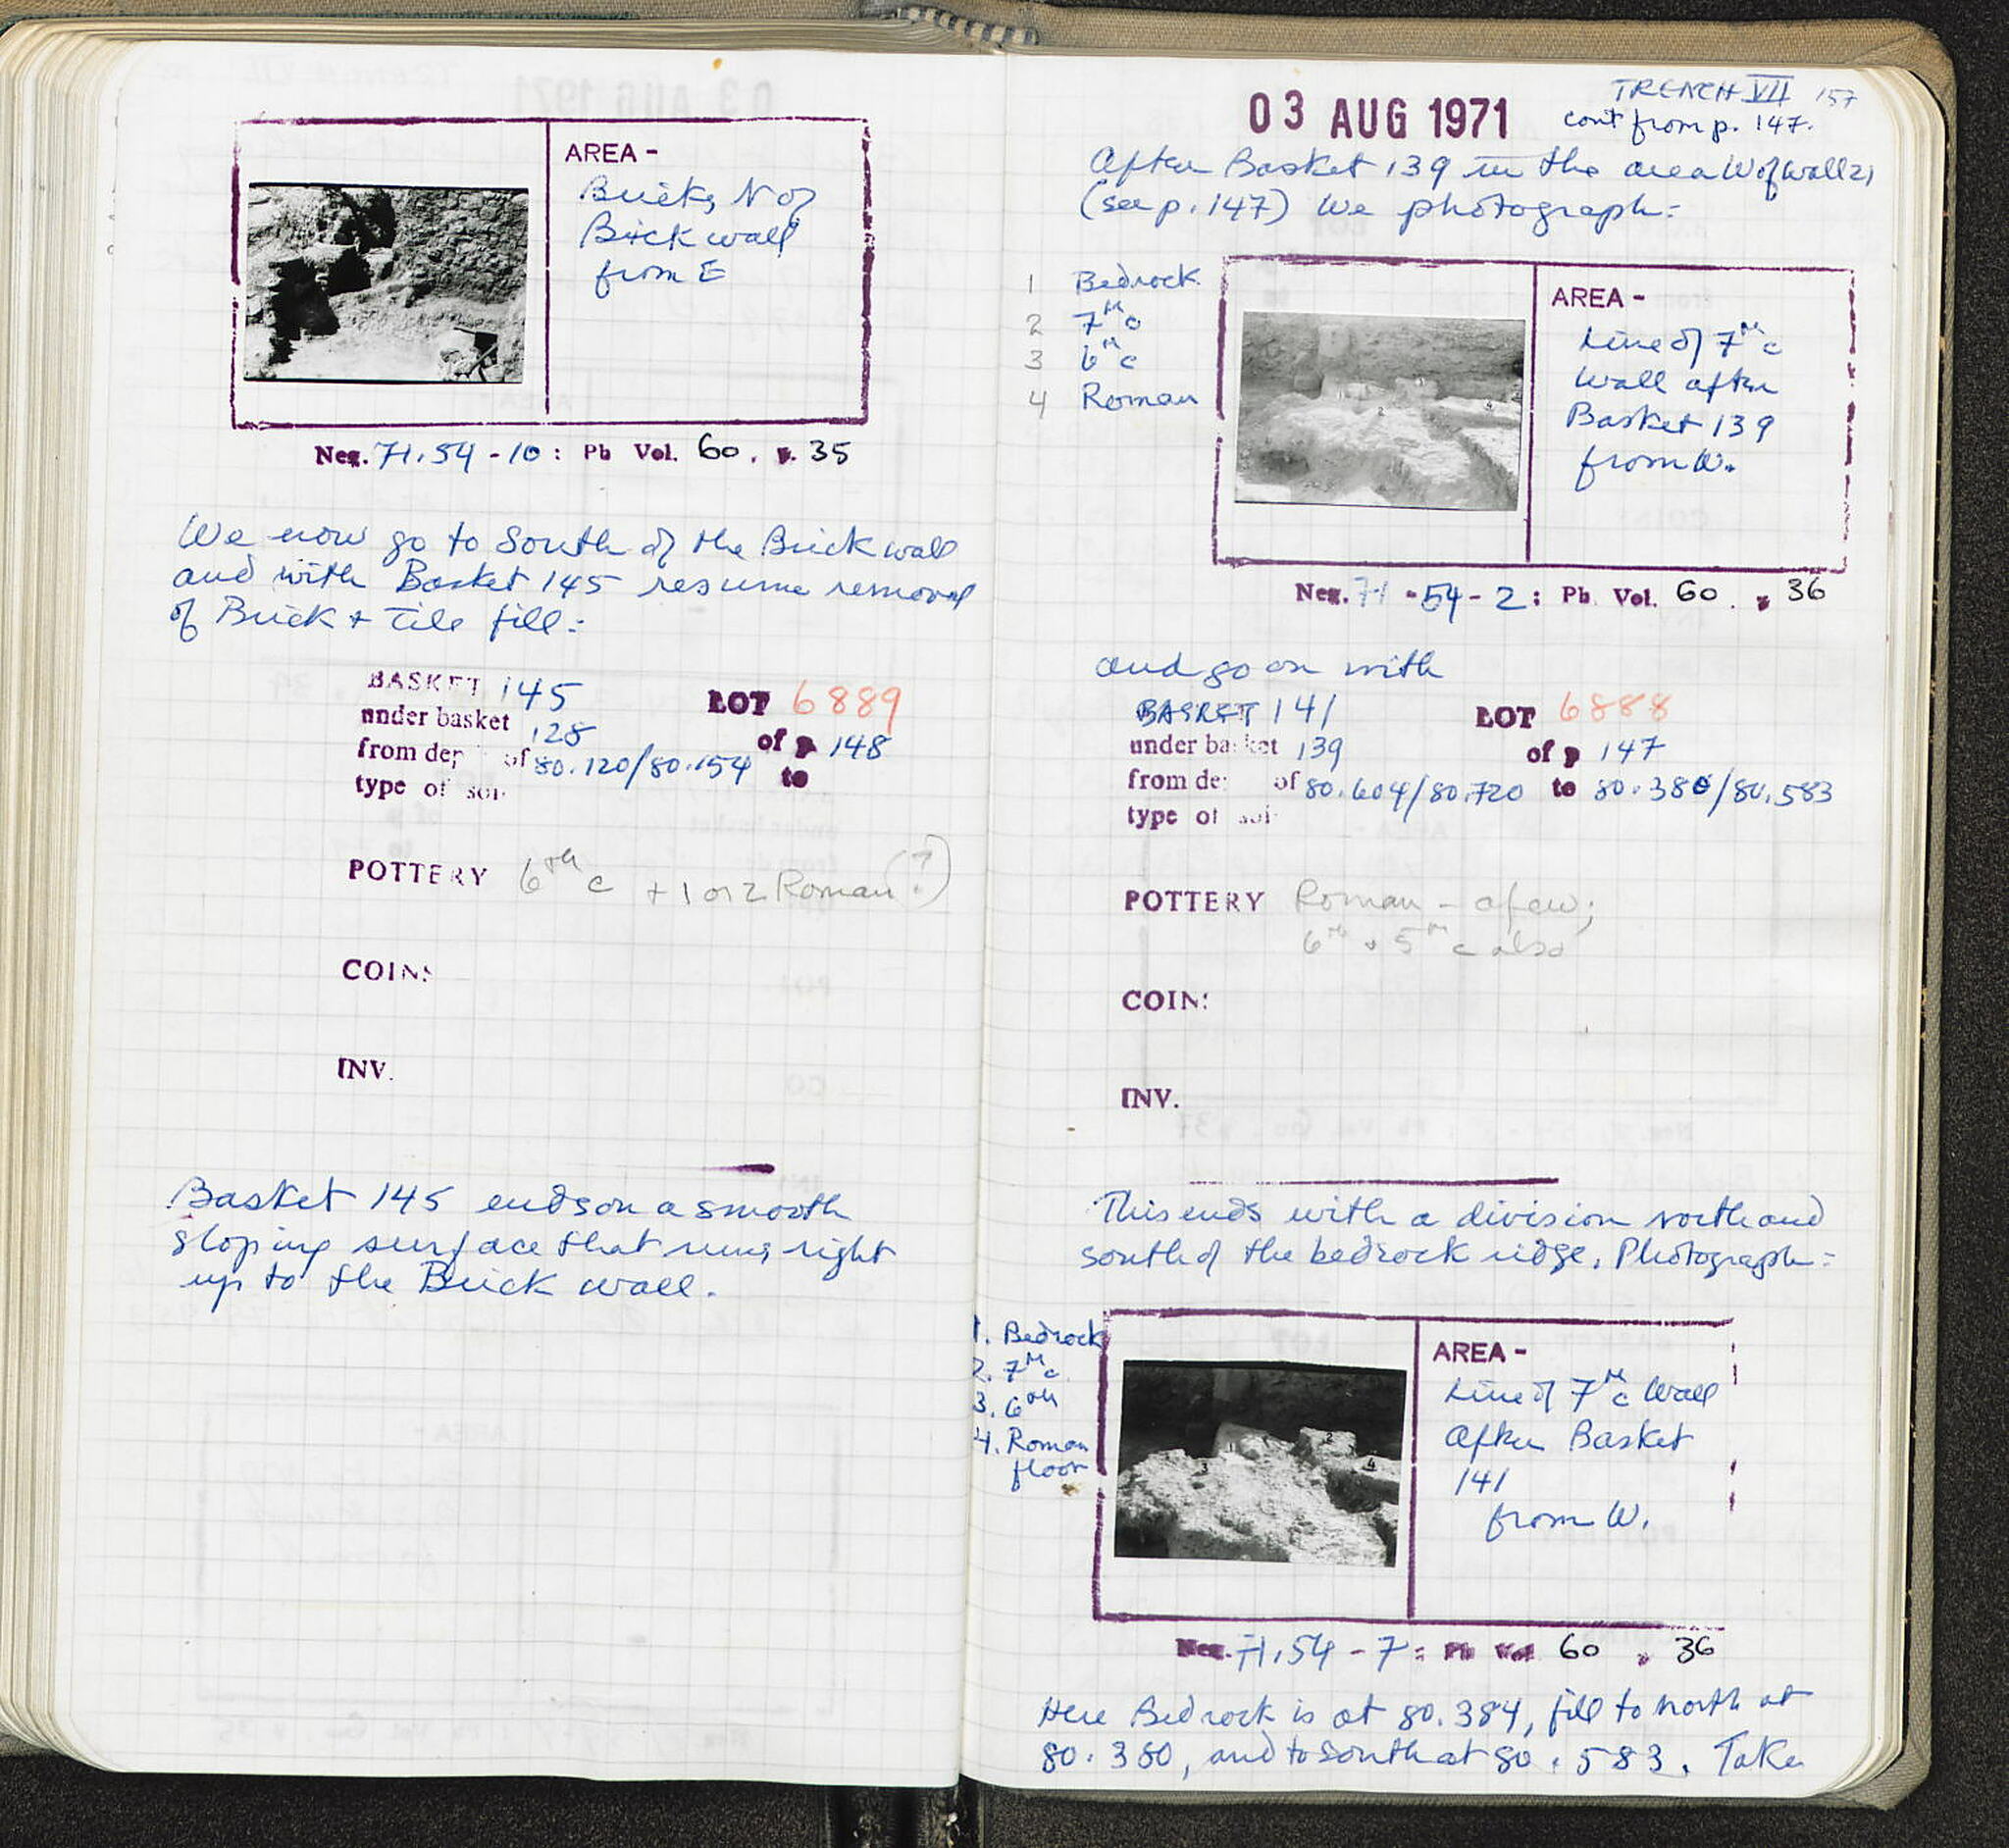 AREA -
Bricks N of
Brick wall
from E
Neg. 71.54 - 10 : Ph Vol. 60 . p. 35
We now go to South of the Brick wall
and with Basket 145 resume removal
of Brick + Tile fill :
BASKET 145 LOT 6889
under basket 128 of p 148
from dep of 80.120/80.154 to
type of soi
POTTERY 6th c + 1 or 2 Roman (?)
COINS
INV.
Basket 145 ends on a smooth
sloping surface that runs right
up to the Brick wall.
03 AUG 1971
TRENCH VII 157
cont from p. 147.
After Basket 139 in the area W of wall 21
(see p. 147) we photograph :
1 Bedrock
2 7th c
3 6th c
4 Roman
AREA -
Line of 7th c
wall after
Basket 139
from W.
Neg. 71 - 54 - 2 : Ph Vol. 60 . p 36
and go on with
BASKET 141 LOT 6888
under basket 139 of p 147
from de of 80.604/80.720 to 80.380/80.583
type of soi
POTTERY Roman - a few ;
6th + 5th c also
COIN
INV.
This ends with a division north and
south of the bedrock ridge. Photograph :
1. Bedrock
2. 7th c
3. 6th
4. Roman
floor
AREA -
Line of 7th c Wall
After Basket
141
from W.
Neg. 71.54 - 7 : Ph Vol 60 . 36
Here Bedrock is at 80.384, fill to north at
80.380, and to south at 80.583. Take